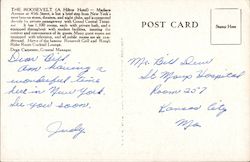 THE ROOSEVELT (A Hilton Hotel) — Madison
Avenue at 45th Street, is but a brief step from New York's
great business stores, theatres, and night clubs, and is connected
directly by private passageway with Grand Central Terminal.
It has 1,100 rooms, each with private bath, and is
equipped throughout with modern facilities, assuring the
comfort and convenience of its guests. Many guest rooms are
equipped with television, and all public rooms are air-conditioned.
Home of the famous Roosevelt Grill and Rough
Rider Room Cocktail Lounge.
Dean Carpenter, General Manager.
POST CARD
Stamp Here
Dear Bill,
Am having a
wonderful time
here in New York.
See you soon.
Judy
Mr. Bill Dew
St Marys Hospital
Room 257
Kansas City
Mo